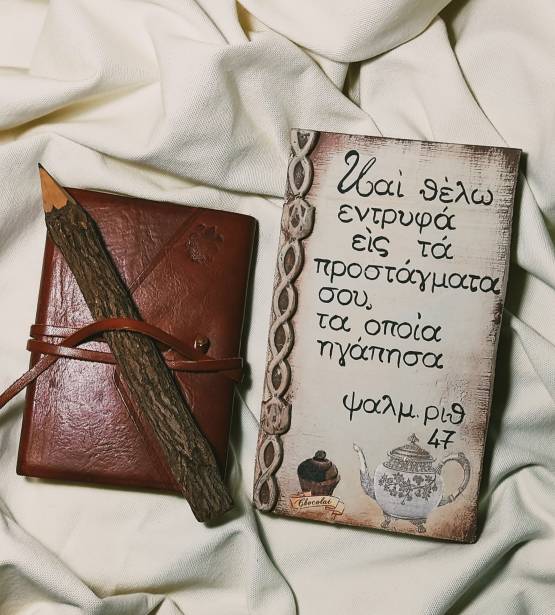 Και θέλω
εντρυφά
εὶς τά
προστάγματα
σου,
τα οποία
ηγάπησα
ψαλμ. ριθ
47
Chocolat